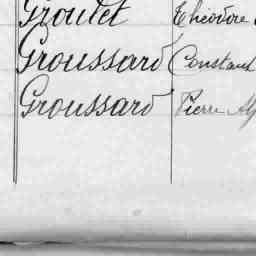 Groulet Théodore
Groussard Constant
Groussard Pierre